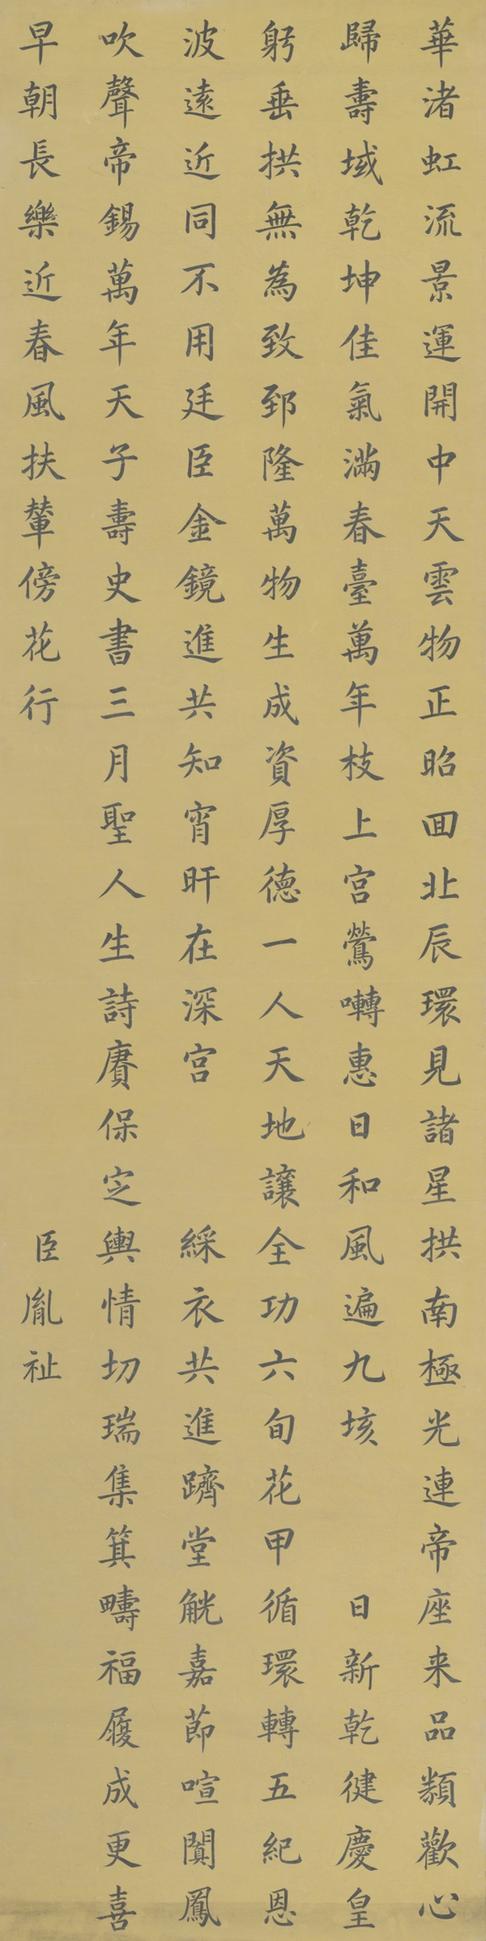 華渚虹流景運開中天雲物正昭回北辰環見諸星拱南極光連帝座来品類歡心
歸壽域乾坤佳氣滿春臺萬年枝上宮鶯囀惠日和風遍九垓　日新乾健慶皇
躬垂拱無為致郅隆萬物生成資厚德一人天地讓全功六旬花甲循環轉五紀恩
波遠近同不用廷臣金鏡進共知宵旰在深宮　綵衣共進躋堂觥嘉節喧闐鳳
吹聲帝錫萬年天子壽史書三月聖人生詩賡保定輿情切瑞集箕疇福履成更喜
早朝長樂近春風扶輦傍花行　臣胤祉